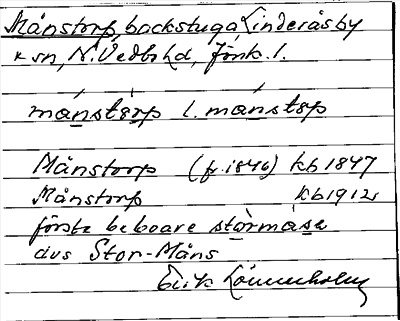 Månstorp, backstuga, Linderås by
o sn, N. Vedbo hd, Jönk. l.
månstårp l. månstɵp
Månstorp (fr. 1846) kb 1847
Månstorp kb 1912
förste beboare stormåsa
dvs Stor-Måns
Erik Lönnerholm